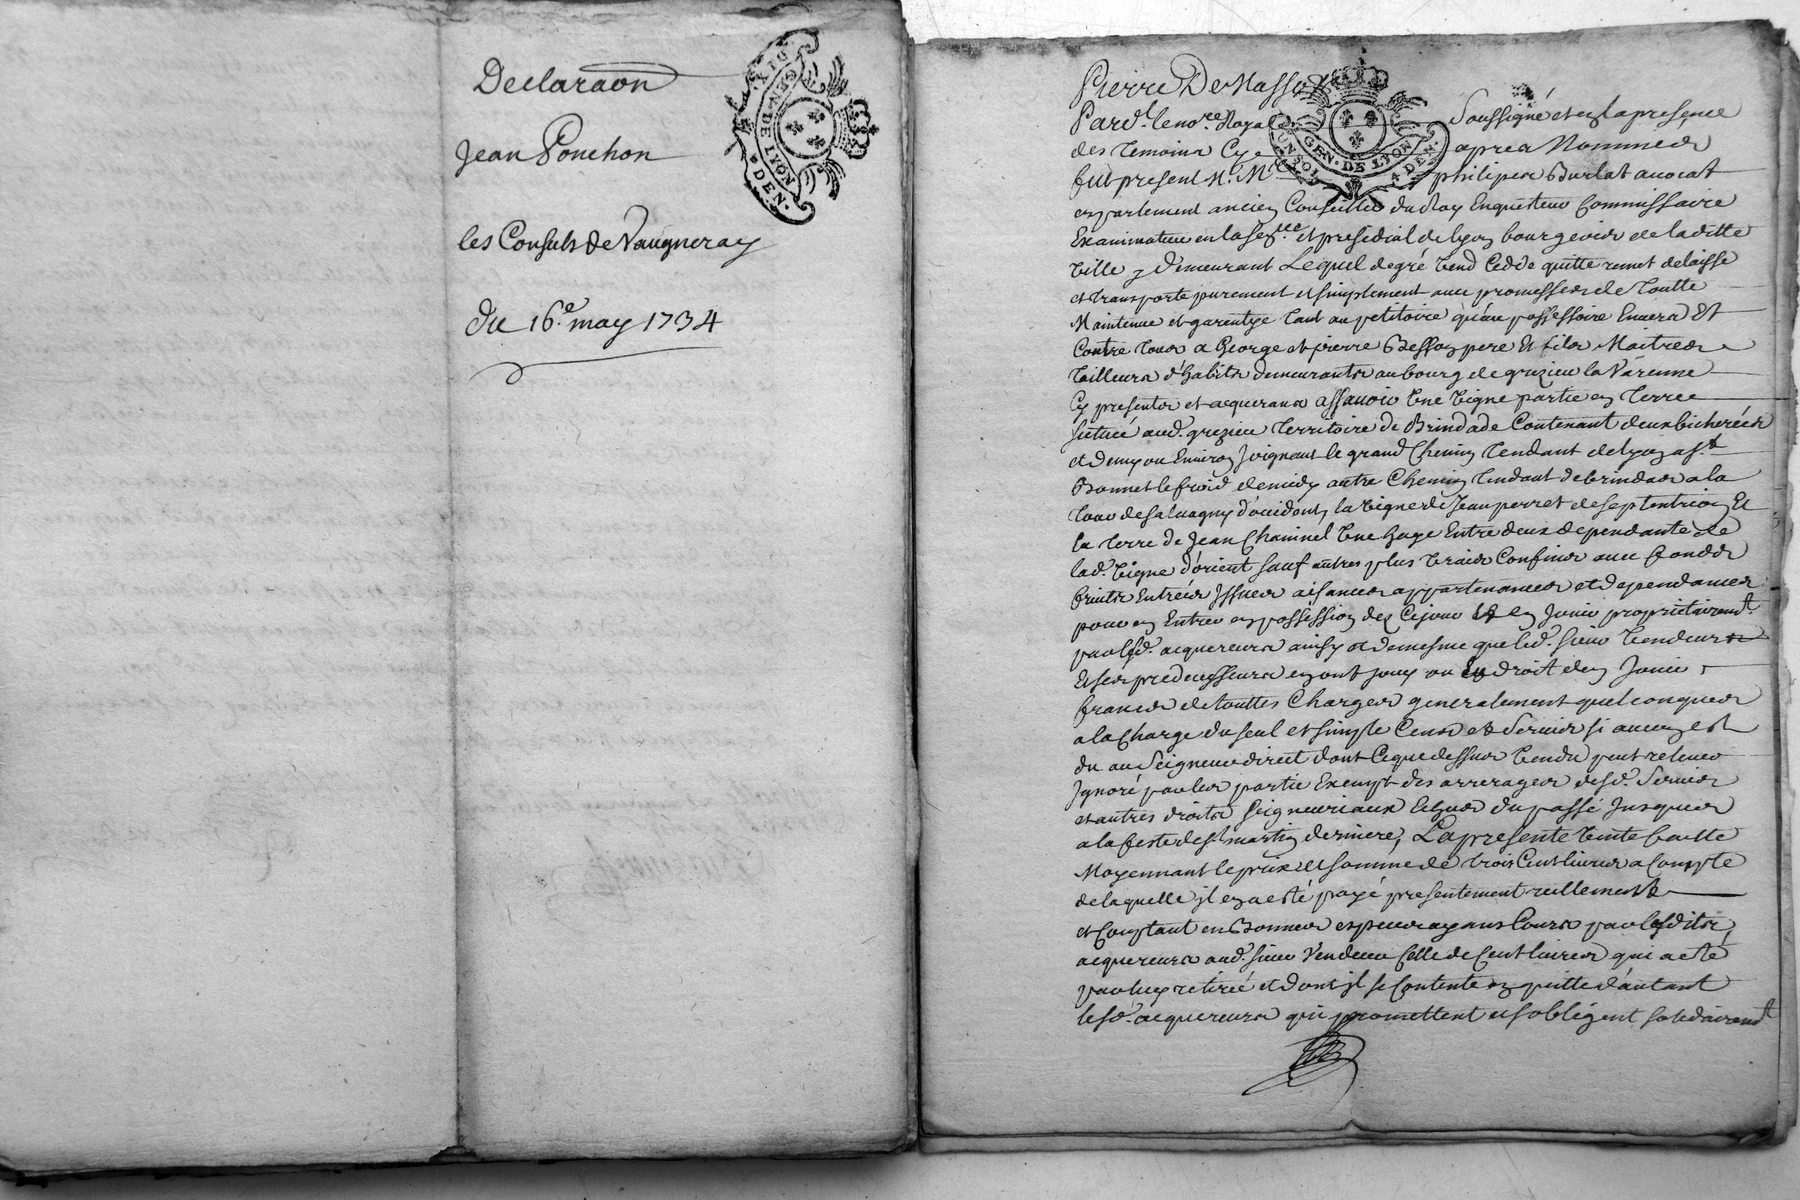 Declaraõn
Jean Ponchon
les Consuls de Vaugneray
du 16e. may 1734
DIX
GEN. DE LYON
DEN.
Pierre De Masso
Pard.t le nore. Royal Soussigné et en la presence
des temoins Cy apres Nommés
fut present Philipes Burlat avocat
en parlement ancien Conseillier du Roy Enquêteur Commissaire
Examinateur en la senée. et presidial de Lyon bourgeois de laditte
Ville y demeurant Lequel de gré Vend Cedde quitte remet delaisse
et transporte purement et simplement avec promesses de Toutte
Maintenue et garentye tant au petitoire qu'au possessoire Envers Et
Contre tous a George et pierre Besson pere Et fils Maitres
tailleurs d'habits demeurants au bourg de grezieu la Varenne
Cy presents et acquereurs assavoir Une Vigne partie en Terre
scitueé aud. grezieu Territoire de Brindade Contenant deux bicherées
et demy ou Environ Joignant le grand Chemin tendant de lyon a St
Bonnet le froid de midy autre Chemin tendant de brindas a la
tour de salvagny d'occident, la Vigne de Jean perret de septentrion Et
la terre de Jean Chainnel Une haye Entredeux dependante de
lad. Vigne d'orient sauf autres plus Vrais Confins avec fonds
fruits Entrées Issues aisances appartenances et dependances
pour en Entrer en possession dez Cejour Et en Jouir propriétairemt.
par lesd. acquereurs ainsy et de mesme que led. sieur Vendeur
Et ses predecesseurs en ont jouy ou Eu droit d'en Jouir
francs de touttes Charges generalement quelconques
a la Charge du seul et simple Cens et Servis si aucun est
du au Seigneur direct dont Ce que dessus Vendu peut relever
Ignoré par les partie Exempt des arrerages desd. Servis
et autres droits Seigneuriaux Echus du passé Jusques
a la feste de st. martin derniere, La presente Vente faitte
Moyennant le prix et somme de trois Cent livres a Compte
de laquelle il en a esté payé presentement réellement
et Comptant en Bonnes especes ayans Cours par lesdits
acquereurs aud. sieur Vendeur Celle de Cent livres qui a esté
par luy retirée et dont il se Contente en quitte d'autant
lesd. acquereurs qui promettent et s'obligent solidairemt
GEN. DE LYON
4 DEN.